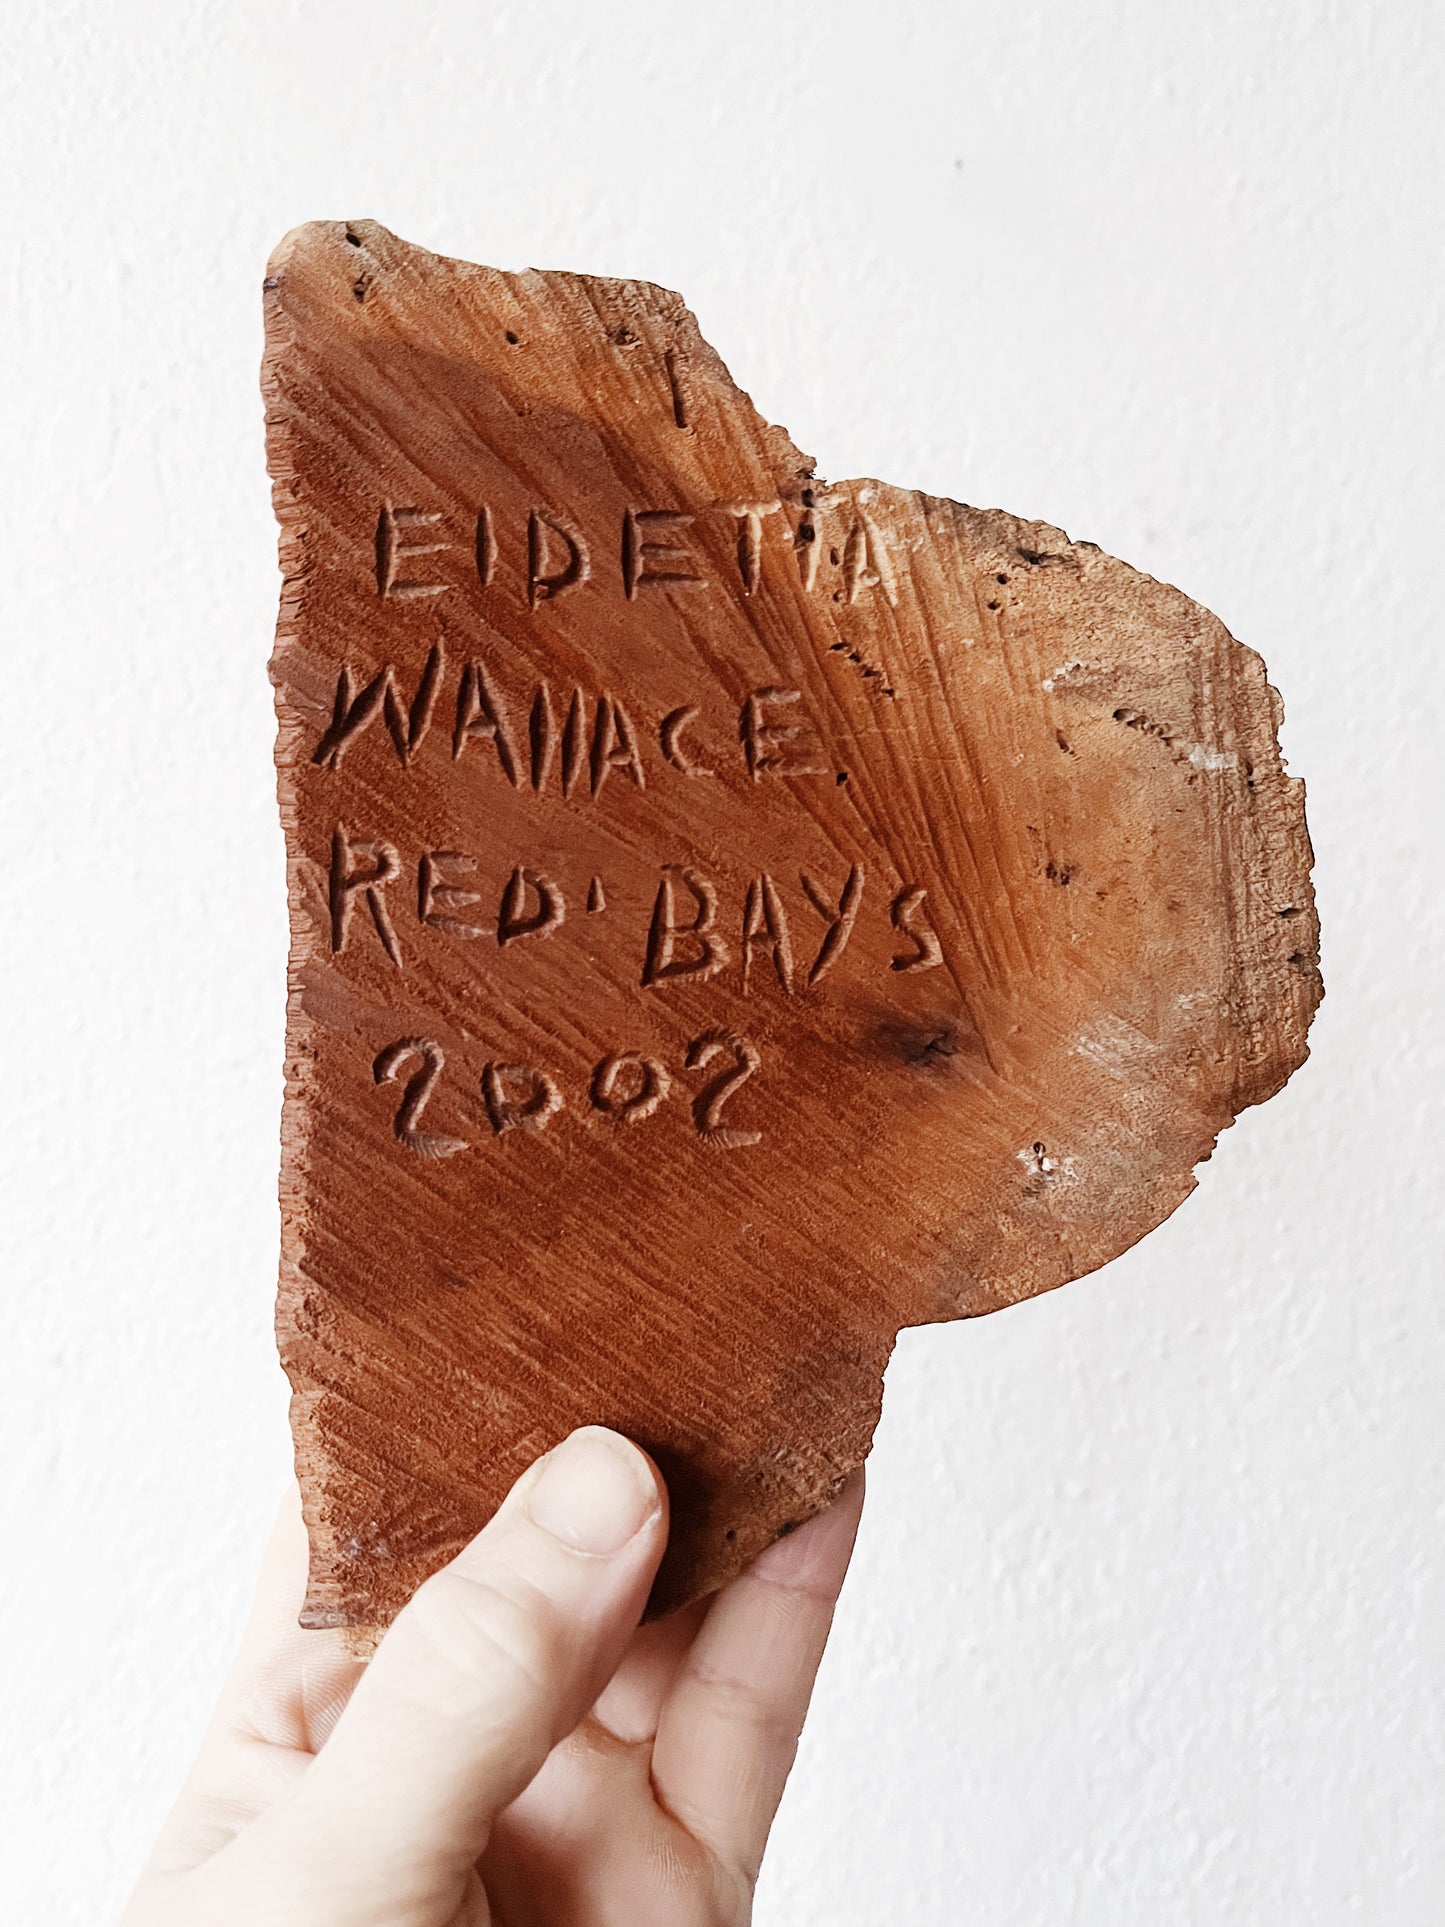 EIDETTA
WALLACE
RED BAYS
2002